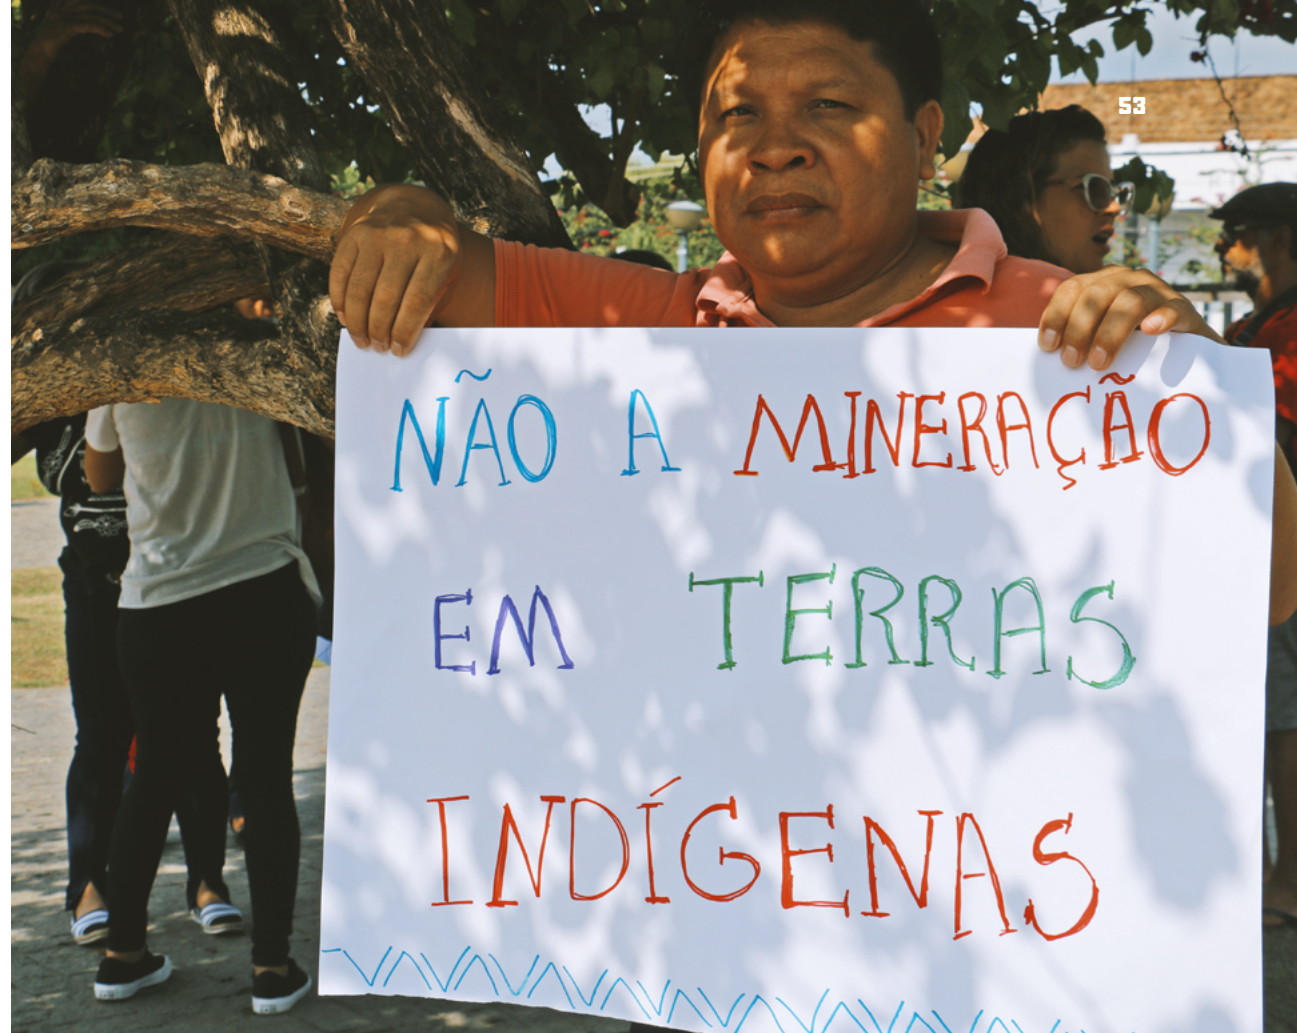 53
NÃO A MINERAÇÃO
EM TERRAS
INDÍGENAS